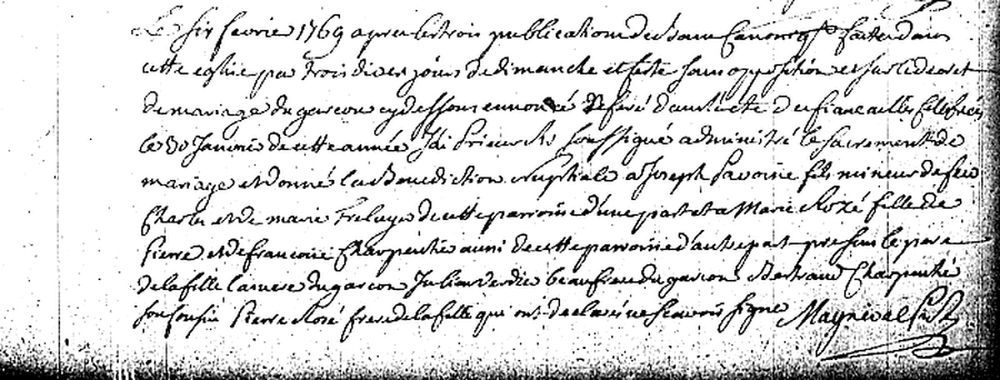 Le six fevrie 1769 apres les trois publications des bans Canoniqt faites dans
cette eglise par trois divers jours de dimanche et feste sans opposition et sur le decret
de mariage du garcon cy dessous ennoncé referé dans l'acte des fiancailles
le 30 Janvie de cette année Jai Prieur soussigné administré le Sacrement de
mariage et donné la Benediction Nuptiale a Joseph Savoire fils mineur de feu
Charles et de marie Freluye de cette parroisse d'une part et a Marie Rozé fille de
Pierre et de francoise Charpentie aussi de cette parroisse d'autre part presens le pere
de la fille la mere du garcon Julien verdie beaufrere du garcon Bertrand Charpentié
son cousin Pierre Rozé frere de la fille qui ont declarés ne scavoir signe Mayneval